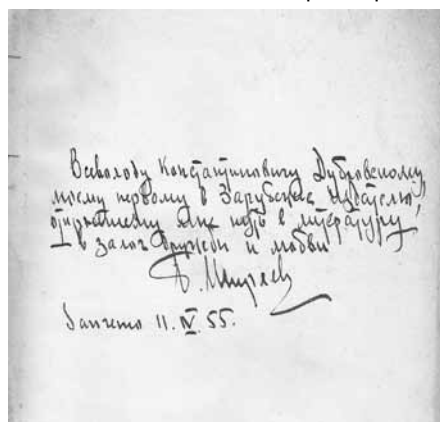 Всеволоду Константиновичу Дубровскому,
моему первому в Зарубежье издателю,
открывшему мне путь в литературу,
в залог дружбы и любви
Б. Ширяев
11. IV. 55.